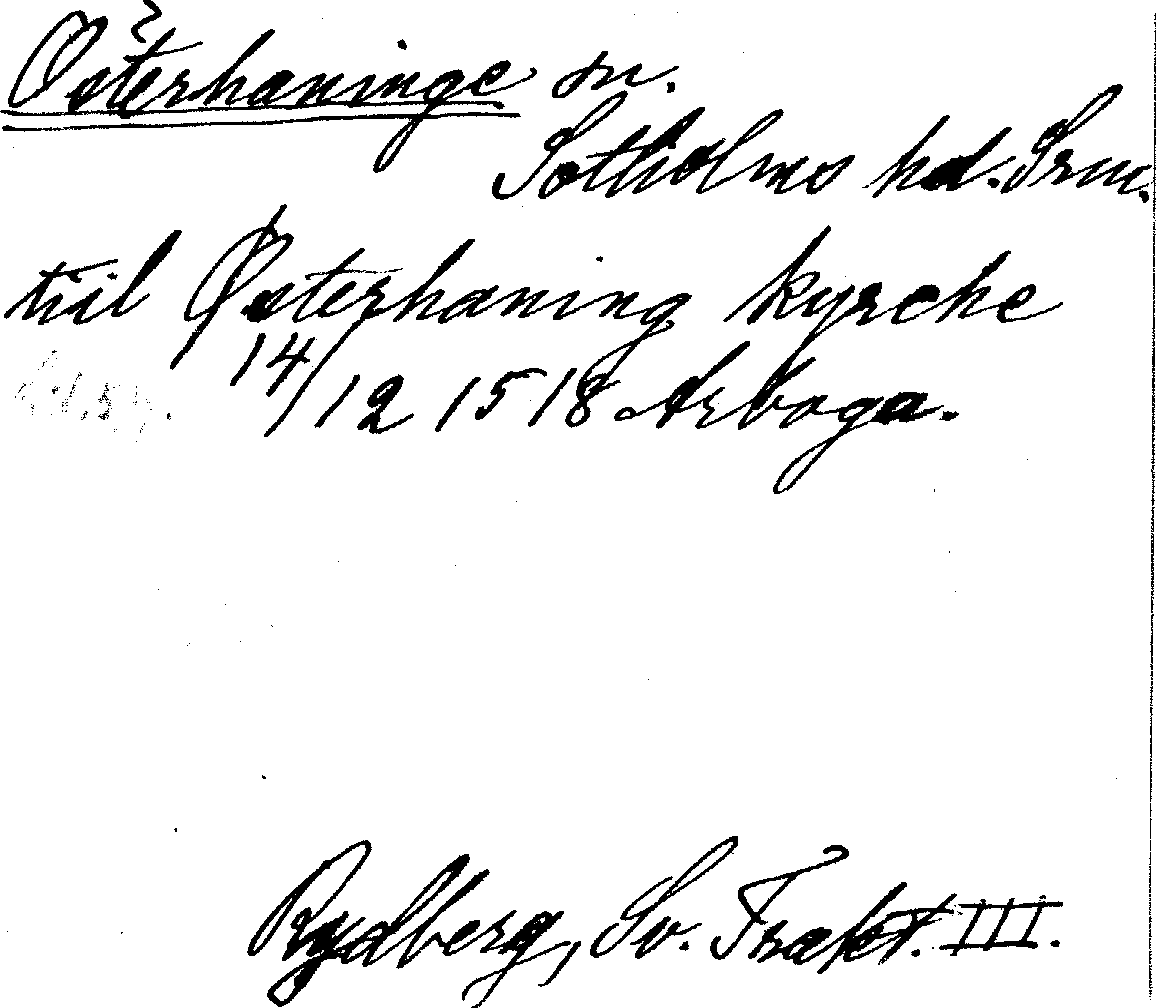 Österhaninge sn.
Sotholms hd. Srm.
till Østerhaning kyrche
14/12 1518 Arboga.
Rydberg, Sv. Trakt. III.